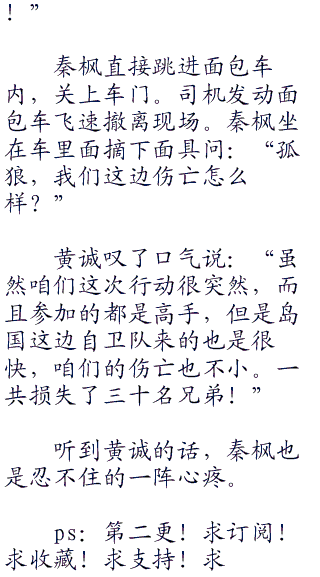 ！”
秦枫直接跳进面包车
内，关上车门。司机发动面
包车飞速撤离现场。秦枫坐
在车里面摘下面具问：“孤
狼，我们这边伤亡怎么
样？”
黄诚叹了口气说：“虽
然咱们这次行动很突然，而
且参加的都是高手，但是岛
国这边自卫队来的也是很
快，咱们的伤亡也不小。一
共损失了三十名兄弟！”
听到黄诚的话，秦枫也
是忍不住的一阵心疼。
ps：第二更！求订阅！
求收藏！求支持！求